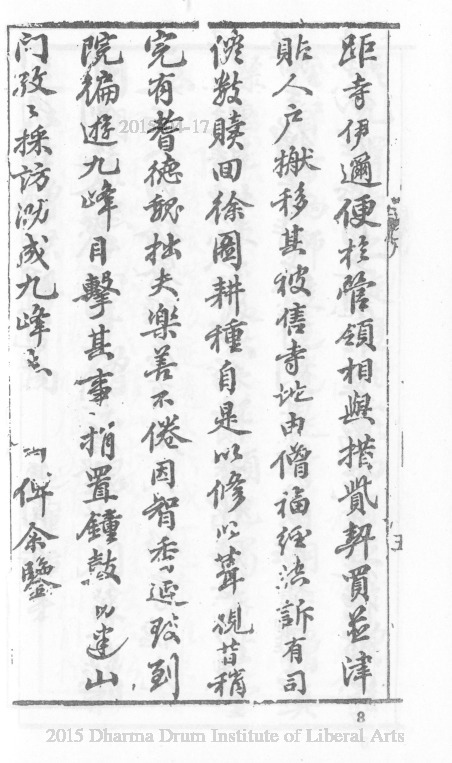 距寺伊邇便於管領相與措貲契買並津
貼人户搬移其被售寺地由僧福經法訴有司
僧數贖回徐圖耕種自是以修以葺視昔稍
完有耆德魏拙夫樂善不倦因智香延致到
院徧遊九峰目擊其事捐置鐘鼓以建山
门孜〻採访泐成九峰志 俾余鑒
8
2015 Dharma Drum Institute of Liberal Arts